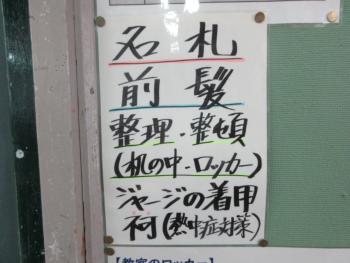 名札
前髪
整理・整頓
(机の中・ロッカー)
ジャージの着用
可(熱中症対策)
【教室のロッカー】